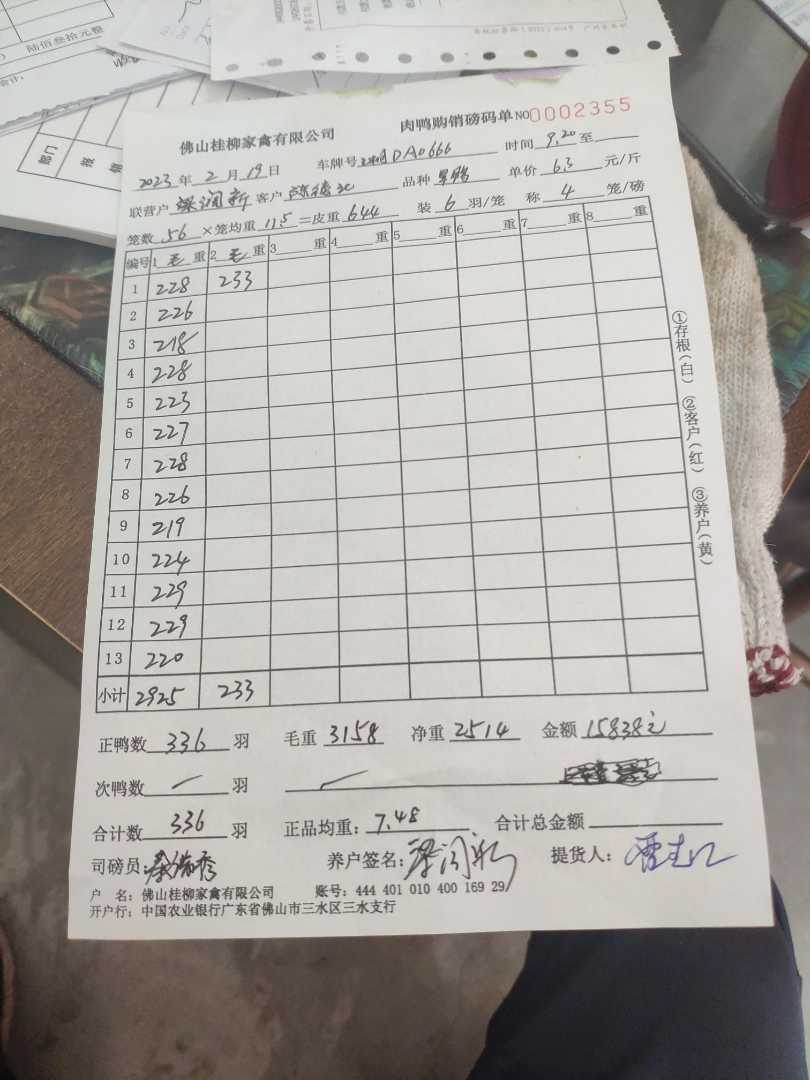 陆佰叁拾元整
部门
佛山桂柳家禽有限公司 肉鸭购销磅码单 NO0002355
2023年2月19日 车牌号 DA0666 时间 9.20 至
联营户 梁润新 客户 品种 单价 6.3 元/斤
笼数 56 ×笼均重 11.5 =皮重 644 装 6 羽/笼 称 4 笼/磅
编号 1 毛 重 2 毛 重 3 重 4 重 5 重 6 重 7 重 8 重
1 228 233
2 226
3 218
4 228
5 223
6 227
7 228
8 226
9 219
10 224
11 229
12 229
13 220
小计 2925 233
①存根(白) ②客户(红) ③养户(黄)
正鸭数 336 羽 毛重 3158 净重 2514 金额 15838元
次鸭数 羽
合计数 336 羽 正品均重: 7.48 合计总金额
司磅员: 养户签名: 梁润新 提货人:
户 名: 佛山桂柳家禽有限公司 账号: 444 401 010 400 169 29
开户行: 中国农业银行广东省佛山市三水区三水支行